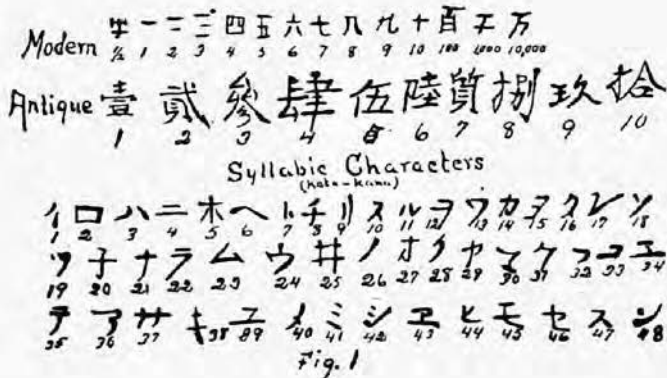 Modern 半 一 二 三 四 五 六 七 八 九 十 百 千 万
½ 1 2 3 4 5 6 7 8 9 10 100 1,000 10,000
Antique 壹 貳 參 肆 伍 陸 質 捌 玖 拾
1 2 3 4 5 6 7 8 9 10
Syllabic Characters
(Kata-Kana)
イ ロ ハ ニ ホ ヘ ト チ リ ヌ ル ヲ ワ カ ヨ タ レ ソ
1 2 3 4 5 6 7 8 9 10 11 12 13 14 15 16 17 18
ツ 子 ナ ラ ム ウ 井 ノ オ ク ヤ マ ケ フ コ エ
19 20 21 22 23 24 25 26 27 28 29 30 31 32 33 34
テ ア サ キ ユ メ ミ シ ヱ ヒ モ セ ス ン
35 36 37 38 39 40 41 42 43 44 45 46 47 48
Fig. 1